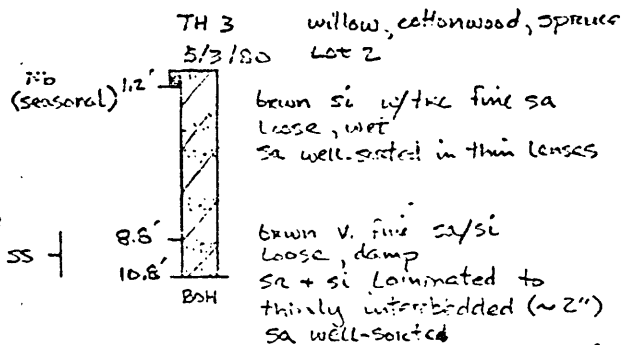 TH 3 willow, cottonwood, spruce
5/3/80 Lot 2
(seasonal) 1.2'
brwn si w/trc fine sa
Loose, wet
sa well-sorted in thin lenses
8.8'
brwn v. fine sa/si
SS
Loose, damp
10.8'
sa + si Laminated to
BOH
thinly interbedded (~2")
sa well-sorted